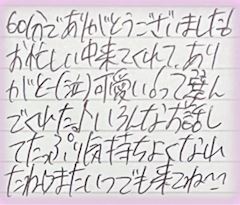 60分でありがとうございました!
お忙しい中来てくれて、あり
がとー(泣)可愛い!って喜ん
でくれた♪いろんなお話し
てたっぷり気持ちよくなれ
たね!またいつでも来てね〜♡